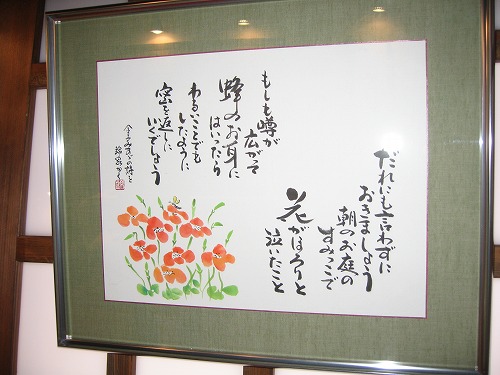 だれにも言わずに
おきましょう
朝のお庭の
すみっこで
花がほろりと
泣いたこと
もしも噂が
広がって
蜂のお耳に
はいったら
わるいことでも
したように
蜜を返しに
いくでしょう
金子みすゞの詩を